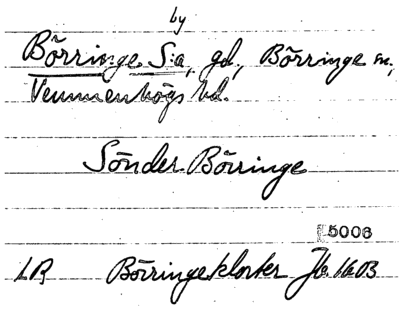 by
Börringe S:a, gd., Börringe sn.,
Vemmenhögs hd.
Sönder Börringe
5006
LR Börringekloster Jb. 1603